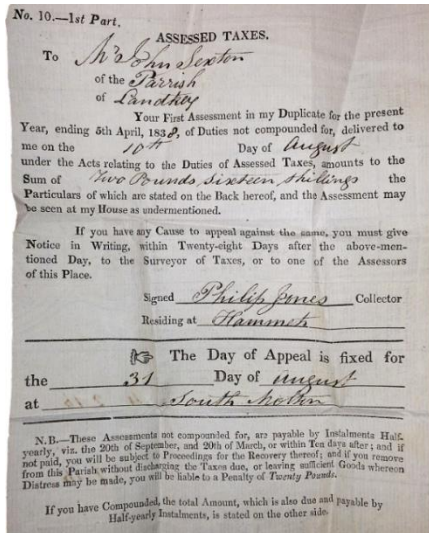 No. 10.—1st Part.
ASSESSED TAXES.
To Mr John Sexton
of the Parrish
of Landkey
Your First Assessment in my Duplicate for the present
Year, ending 5th April, 1838, of Duties not compounded for, delivered to
me on the 10th Day of August
under the Acts relating to the Duties of Assessed Taxes, amounts to the
Sum of Two Pounds, sixteen shillings the
Particulars of which are stated on the Back hereof, and the Assessment may
be seen at my House as undermentioned.
If you have any Cause to appeal against the same, you must give
Notice in Writing, within Twenty-eight Days after the above-men-
tioned Day, to the Surveyor of Taxes, or to one of the Assessors
of this Place.
Signed Philip Jones Collector
Residing at
☞ The Day of Appeal is fixed for
the 31 Day of August
at South Molton
N.B.—These Assessments not compounded for, are payable by Instalments Half-
yearly, via. the 20th of September, and 20th of March, or within Ten days after; and if
not paid, you will be subject to Proceedings for the Recovery thereof; and if you remove
from this Parish without discharging the Taxes due, or leaving sufficient Goods whereon
Distress may be made, you will be liable to a Penalty of Twenty Pounds.
If you have Compounded, the total Amount, which is also due and payable by
Half-yearly Instalments, is stated on the other side.